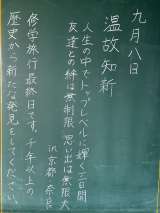 九月八日
温故知新
人生の中でトップレベルに輝く三日間
友達との絆は無制限 思い出は無限大
in京都 奈良
修学旅行最終日です。千年以上の
歴史から新たな発見をしてください。